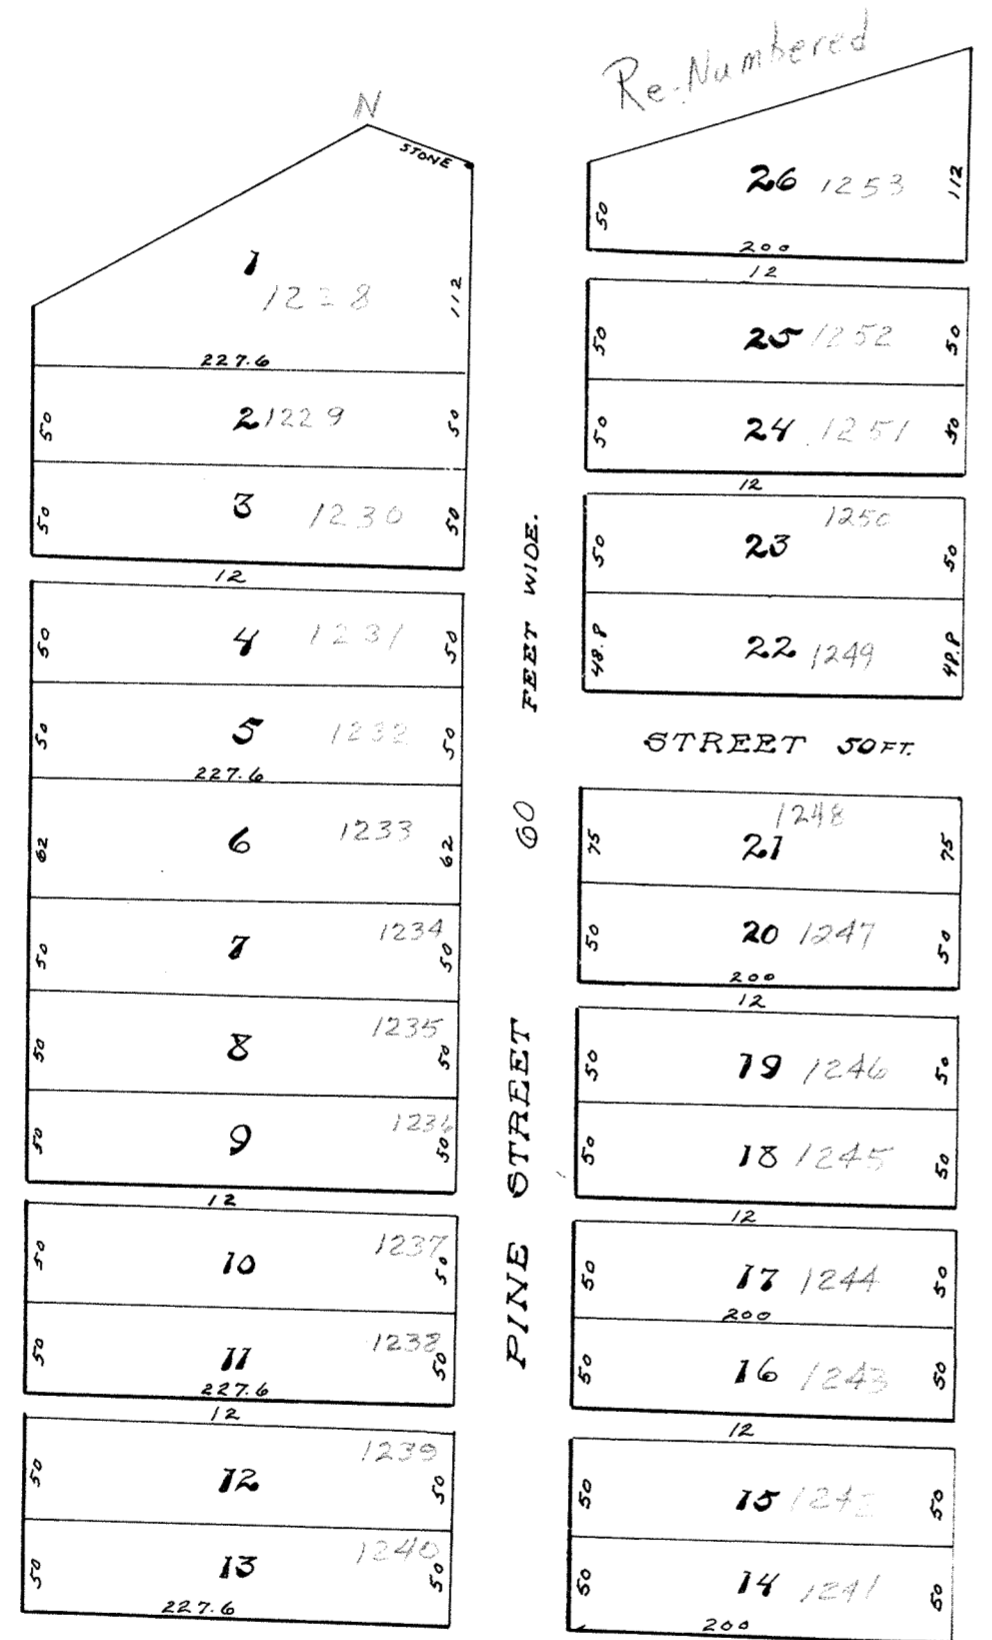 Re-Numbered
N
STONE
1
1228
112
227.6
50
2 1229
50
50
3 1230
50
12
50
4 1231
50
50
5 1232
50
227.6
62
6 1233
62
50
7 1234
50
50
8 1235
50
50
9 1236
50
12
50
10 1237
50
50
11 1238
50
227.6
12
50
12 1239
50
50
13 1240
50
227.6
PINE STREET 60 FEET WIDE.
50
26 1253
112
200
12
50
25 1252
50
50
24 1251
50
12
1250
50
23
50
48.8
22 1249
48.8
STREET 50 FT.
1248
75
21
75
50
20 1247
50
200
12
50
19 1246
50
50
18 1245
50
12
50
17 1244
50
200
50
16 1243
50
12
50
15 1242
50
50
14 1241
50
200